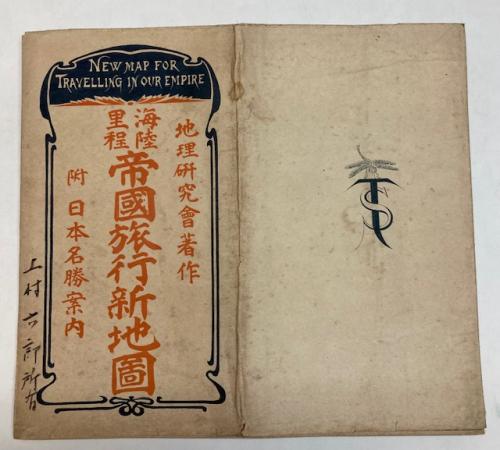 NEW MAP FOR
TRAVELLING IN OUR EMPIRE
地理研究會著作
海陸
里程
帝國旅行新地圖
附 日本名勝案内
上村六郎所有
TS